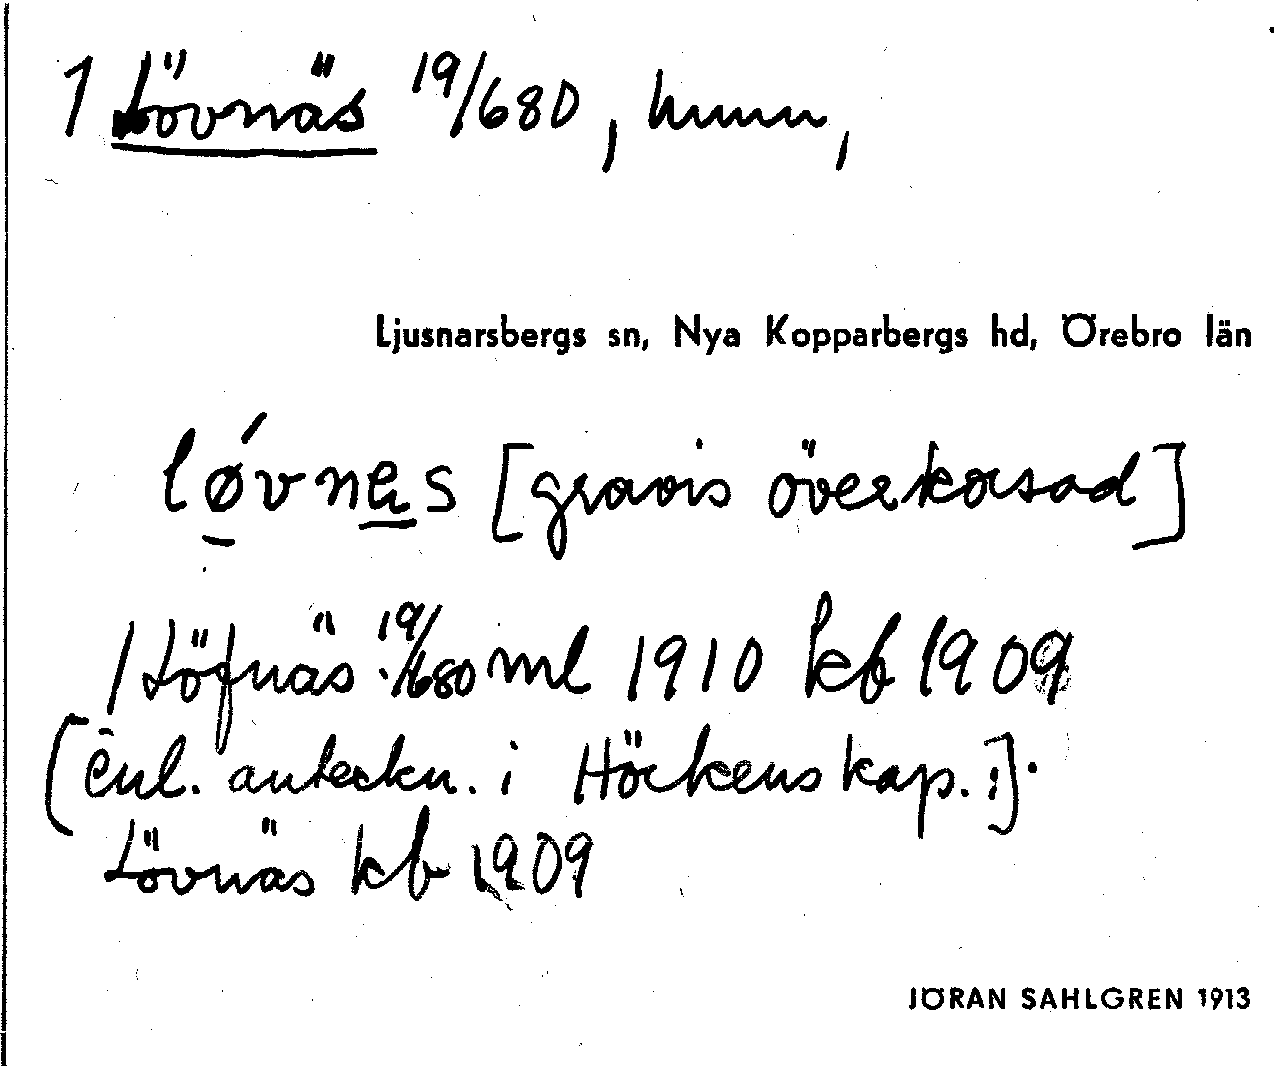 1 Lövnäs 19/680, hmn,
Ljusnarsbergs sn, Nya Kopparbergs hd, Örebro län
lǿvnäs [gravis överkorsad]
1 Löfnäs 19/680 ml 1910 kb 1909
[enl. anteckn. i Höckens kap. :].
Lövnäs kb 1909
JÖRAN SAHLGREN 1913